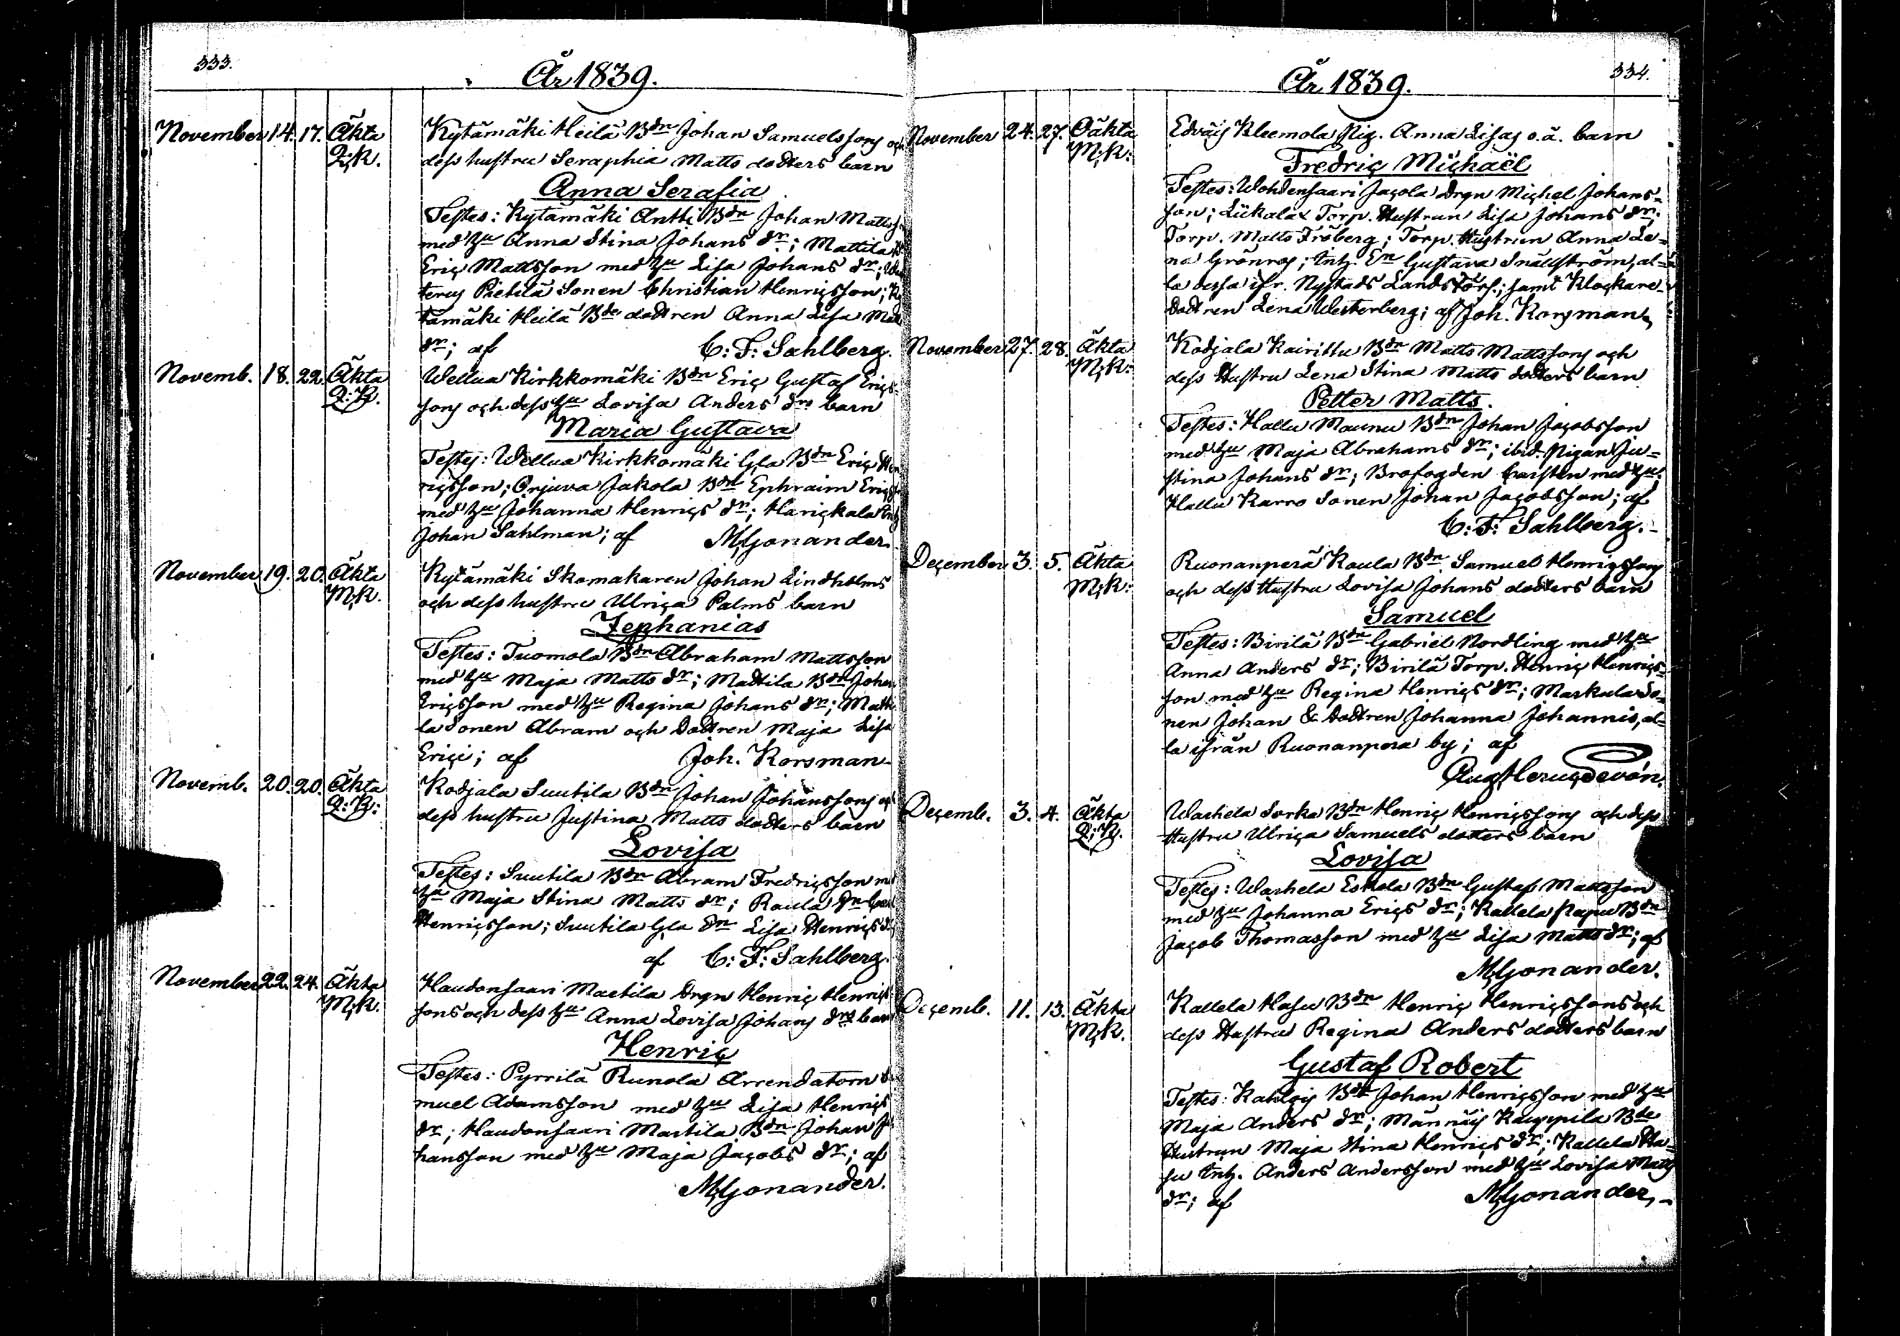 333.
År 1839.
November 14. 17. Äkta Kytämäki Heilä Bdn Johan Samuelssons och
Q;K. dess hustru Seraphia Matts dotters barn
Anna Serafia
Testes: Kytämäki Antti Bdn Johan Matts
med hu Anna Stina Johans dr; Mattila
Eriç Mattsson med hu Lisa Johans dr;
Pietilä Sonen Christian Henriçsson; Ky
tämäki Heilä Bde dottren Anna Lisa Matts
dr; af C: F: Sahlberg.
Novemb. 18. 22. Äkta Wellua Kirkkomäki Bdn Eriç Gustaf Eriçs
Q: K. sons och dess hu Lovisa Anders drs barn
Maria Gustava
Testes: Wellua Kirkkomäki Gla Bdn Eriç Hen
riçsson; Orjuva Jakola Bdn Ephraim Eriçss
med hu Johanna Henriçs dr; Hariçkala
Johan Sahlman; af M;Gonander.
November 19. 20. Äkta Kytämäki Skomakaren Johan Lindholms
M;K. och dess hustru Ulriça Palms barn
Zephanias
Testes: Tuomola Bdn Abraham Mattsson
med hu Maja Matts dr; Mattila Bdn Johan
Eriçsson med hu Regina Johans dr; Matti
la Sonen Abram och Dottren Maja Lisa
Eriçi; af Joh. Korsman
Novemb. 20. 20. Äkta Kodjala Suutila Bdn Johan Johanssons och
Q: K: dess hustru Justina Matts dotters barn
Lovisa
Testes: Suutila Bdn Abram Fredriçsson m
hu Maja Stina Matts dr; Raula
Henriçsson; Suutila Gla Dr Lisa Henriçs d
af C: F: Sahlberg.
November 22. 24. Äkta Haudonsaari Martila Drgn Henriç Henriçs
M;K. sons och dess hu Anna Lovisa Johans drs barn
Henriç
Testes: Pyrrilä Runola Arrendatorn
muel Adamsson med hu Lisa Henriçs
dr; Haudonsaari Martila Bdn Johan Jo
hansson med hu Maja Jaçobs dr; af
M;Gonander.
334.
År 1839.
November 24. 27. Oäkta Edväis Kleemola Pig. Anna Lisas o.ä. barn
M;K: Fredriç Miçhaël
Testes: Wohdensaari Jaçola Drgn Miçhel Johans=
son; Liikala Torp. Hustrun Lisa Johans dr;
Torp. Matts Fröberg; Torp. Hustrun Anna Le=
na Grönros; Inh. En Gustava Snällström, al=
la dessa ifr. Nystads Landsförs.; samt Kloçkare-
Dottren Lena Westerberg; af Joh. Korsman
November 27. 28. Äkta Kodjala Kairittu Bdn Matts Mattssons och
M;K: dess Hustru Lena Stina Matts dotters barn
Petter Matts.
Testes: Hallu Maunu Bdn Johan Jaçobsson
med hu Maja Abrahams dr; ibid. Pigan Ju=
stina Johans dr; Brofogden Carsten med hu.
Hallu Karro Sonen Johan Jaçobsson; af
C: F: Sahlberg.
Deçember 3. 5. Äkta Ruonanperä Kaula Bdn Samuel Henriçssons
M;K: och dess Hustru Lovisa Johans dotters barn
Samuel
Testes: Birilä Bdn Gabriel Nordling med hu
Anna Anders dr; Birilä Torp. Henriç Henriçs=
son med hu Regina Henriçs dr; Markula So=
nen Johan & Dottren Johanna Johannis, al=
la ifrån Ruonanpera by; af
Deçemb. 3. 4. Äkta Warhela Sorka Bdn Henriç Henriçssons och dess
Q; K. Hustru Ulriça Samuels dotters barn
Lovisa
Testes: Warhela Eskola Bdn Gustaf Mattsson
med hu Johanna Eriçs dr; Kallela Papu Bdn
Jaçob Thomasson med hu Lisa Matts dr; af
M;Gonander.
Deçemb. 11. 13. Äkta Kallela Hasu Bdn Henriç Henriçssons och
M;K. dess Hustru Regina Anders dotters barn
Gustaf Robert
Testes: Kahlois Bdn Johan Henriçsson med hu
Maja Anders dr; Männäis Kauppila Bde
Hustrun Maja Stina Henriçs dr; Kallela Ha=
su Inh. Anders Andersson med hu Lovisa Matts
dr; af M;Gonander,